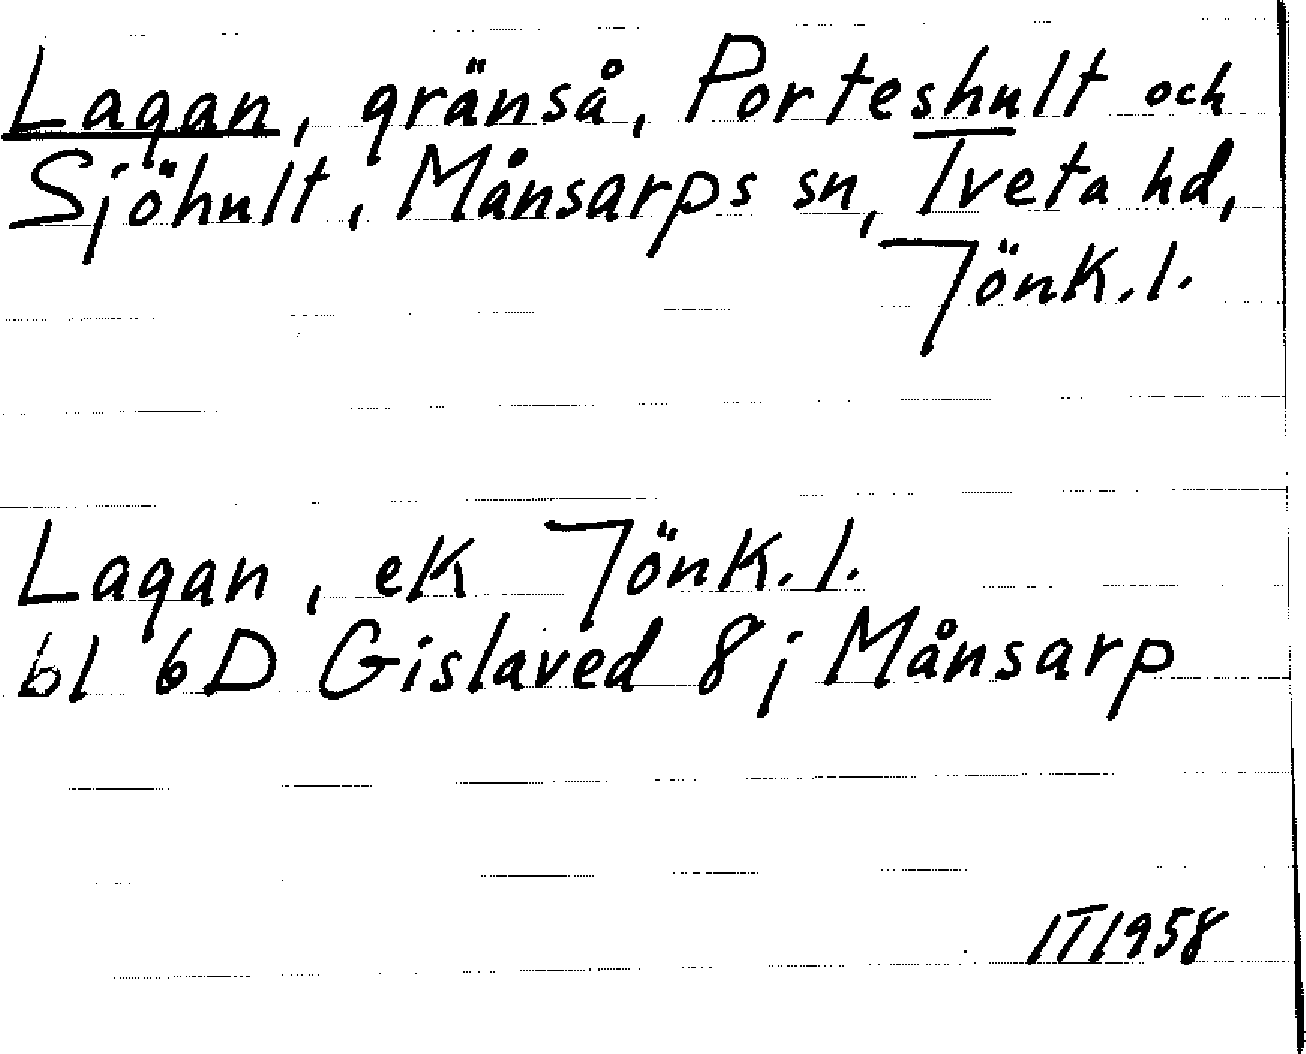 Lagan, gränså, Porteshult och
Sjöhult, Månsarps sn, Tveta hd,
Jönk.l.
Lagan, ek Jönk.l.
bl 6D Gislaved 8j Månsarp
IT1958